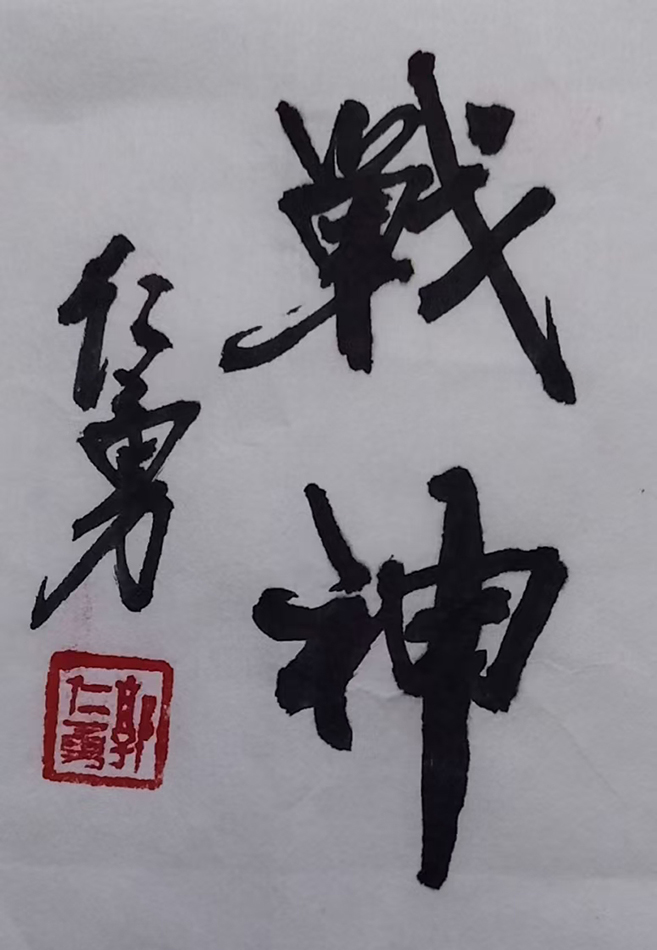 戦神
仁勇
郭
仁勇